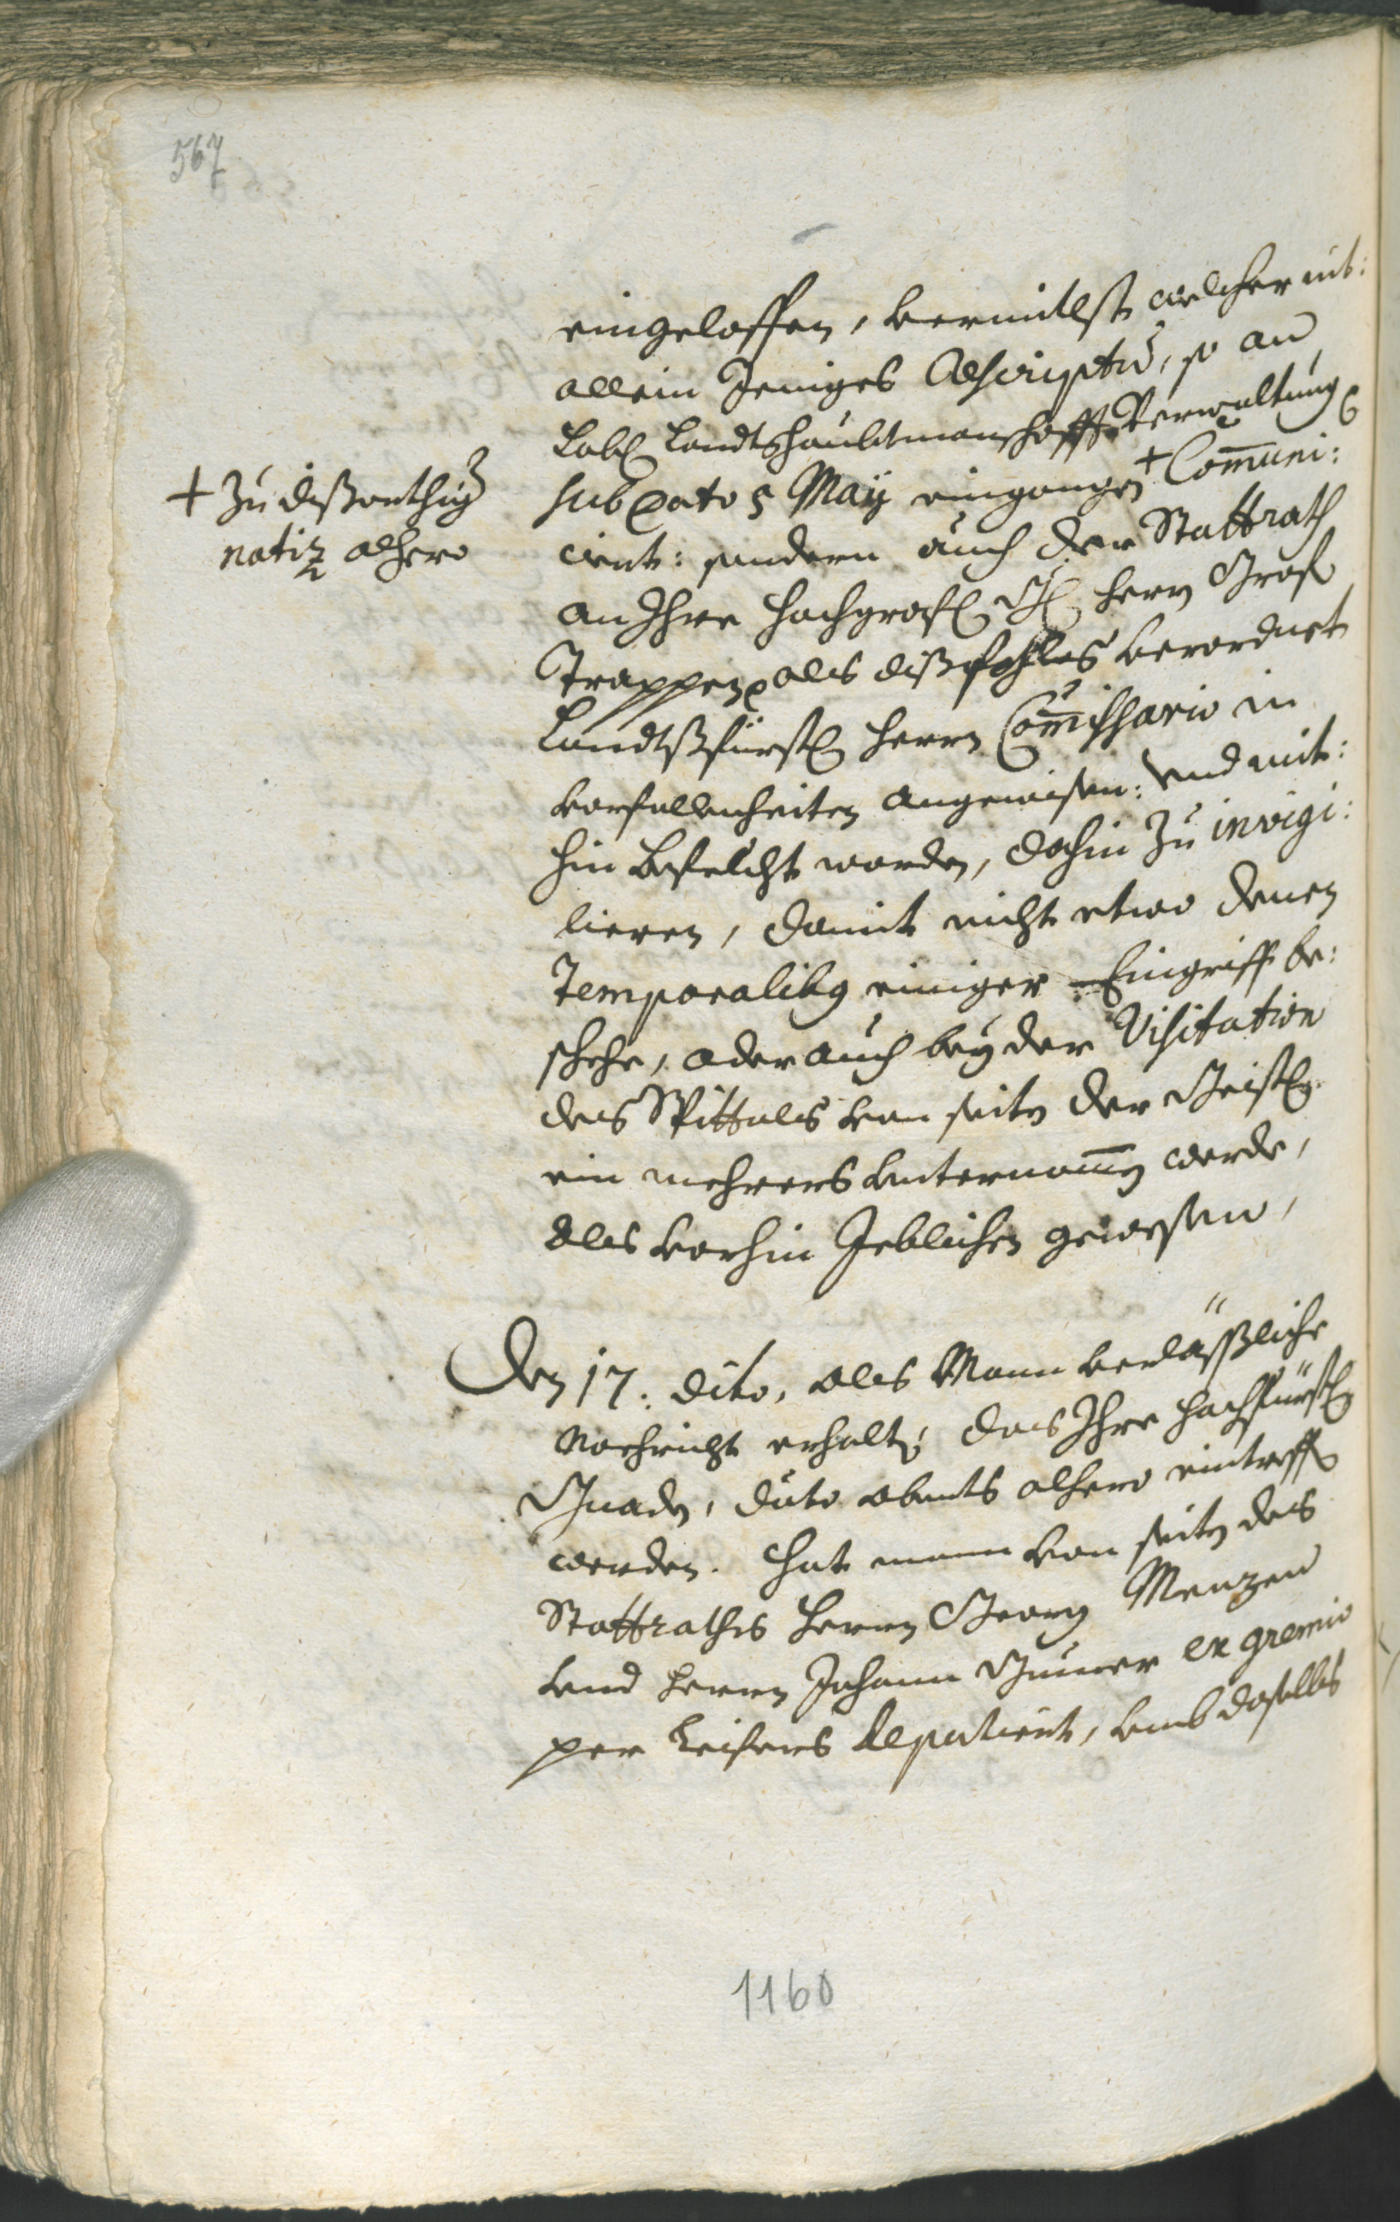 567
eingeloffen, vermitlst welcher nit:
allein Jeniges Rescriptu, so an
Lobl Landtshaubtmanschaffts Verwaltung
sub dato 5 May eingangen + Communi:
+ zu dißorthig
notiz alhero
ciert: sondern auch der Stattrath
an Ihre hochgrafl Gl herrn Graf
Trappen als dißfahls verordnet
Landtsfürstl herrn Commissario in
vorfallenheiten angewisen: vnd mit:
hin befelcht worden, dahin zu invigi:
lieren, damit nicht etwo denen
Temporalibus einiger Eingriff be:
schehe, oder auch bey der Visitation
des Spittals von seiten der Geistl
ein mehrers vnternomen werde,
als vorhin Yeblichen gewesen,
Den 17. dito, als Mann verläßliche
Nachricht erhalten, das Ihre hochfürstl
Gnaden, dato abents alhero eintreffen
werden. hat mann von seiten des
Stattraths herrn Georg Menzen
vnd herrn Johann Gumer ex gremio
per Leifers deputiert, vmb daselbs
1160